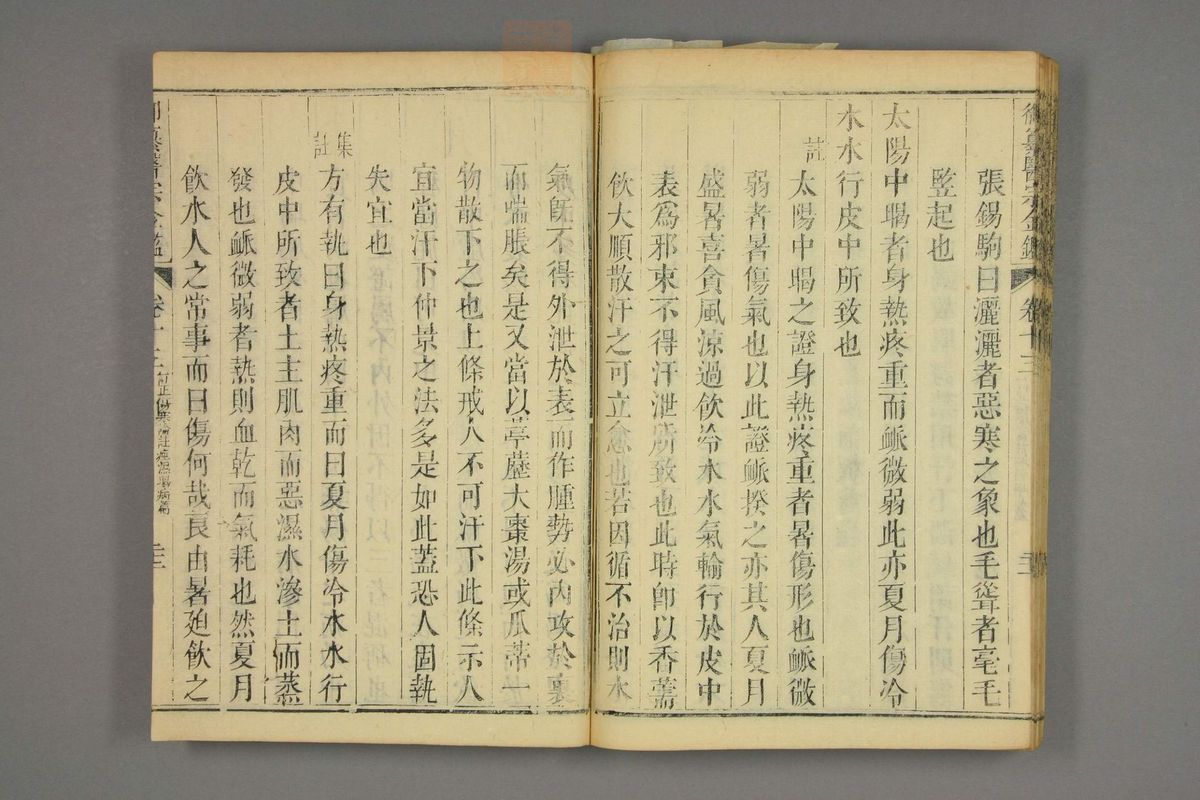 張錫駒曰灑灑者惡寒之象也毛聳者毫毛
豎起也
太陽中暍者身熱疼重而脈微弱此亦夏月傷冷
水水行皮中所致也
註太陽中暍之證身熱疼重者暑傷形也脈微
弱者暑傷氣也以此證脈揆之亦其人夏月
盛暑喜貪風涼過飲冷水水氣輸行於皮中
表爲邪束不得汗泄所致也此時卽以香薷
飲大順散汗之可立愈也若因循不治則水
氣旣不得外泄於表而作腫勢必內攻於裏
而喘脹矣是又當以葶藶大棗湯或瓜蒂一
物散下之也上條戒人不可汗下此條示人
宜當汗下仲景之法多是如此蓋恐人固執
失宜也
集註方有執曰身熱疼重而曰夏月傷冷水水行
皮中所致者土主肌肉而惡濕水滲土而蒸
發也脈微弱者熱則血乾而氣耗也然夏月
飲水人之常事而曰傷何哉良由暑迫飲之
御纂醫宗金鑑 卷十三 訂正傷寒論註痙濕暍病篇 三三